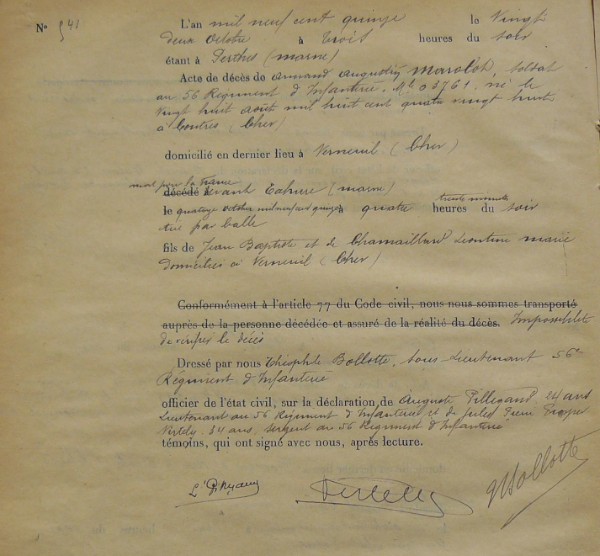 N° 941
L'an mil neuf cent quinze le Vingt
deux Octobre à trois heures du soir
étant à Perthes (marne)
Acte de décès de Armand Augustin Marolot, Soldat
au 56 Régiment d'Infanterie, Mle né le
Vingt huit août mil huit cent quatre vingt huit
à Contres (Cher)
domicilié en dernier lieu à Verneuil (Cher)
mort pour la France
décédé devant Tahure (marne)
trente minutes
le quatorze Octobre mil neuf cent quinze à quatre heures du soir
tué par balle
fils de Jean Baptiste et de Chamaillard Léontine marie
domiciliés à Verneuil (Cher)
Conformément à l'article 77 du Code civil, nous nous sommes transporté
auprès de la personne décédée et assuré de la réalité du décès. Impossibilité
de vérifier le décès
Dressé par nous Théophile Bollotte, Sous-Lieutenant 56e
Régiment d'Infanterie
officier de l'état civil, sur la déclaration de Auguste 24 ans
Lieutenant au 56 Régiment d'Infanterie et de Jules Pierre
34 ans, sergent au 56 Régiment d'Infanterie
témoins, qui ont signé avec nous, après lecture.
Bollotte